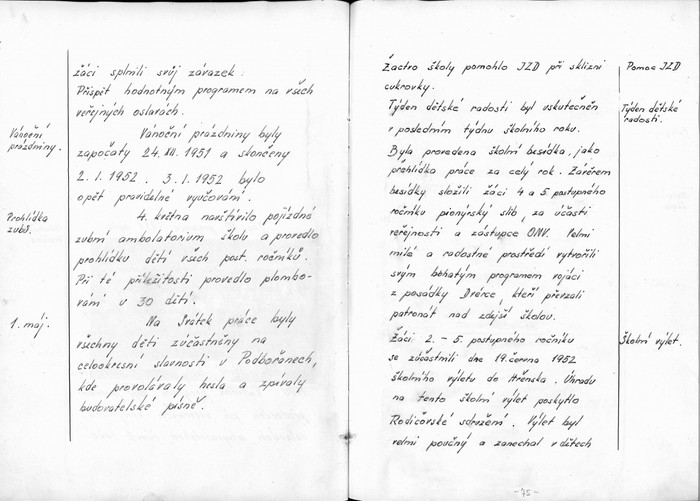 žáci splnili svůj závazek:
Přispět hodnotným programem na všech
veřejných oslavách.
Vánoční
prázdniny.
Vánoční prázdniny byly
započaty 24. XII. 1951 a skončeny
2. 1. 1952. 3. 1. 1952 bylo
opět pravidelné vyučování.
Prohlídka
zubů.
4. května navštívilo pojízdné
zubní ambulatorium školu a provedlo
prohlídku dětí všech post. ročníků.
Při té příležitosti provedlo plombo-
vání u 30 dětí.
1. máj.
Na Svátek práce byly
všechny děti zúčastněny na
celookresní slavnosti v Podbořanech,
kde provolávaly hesla a zpívaly
budovatelské písně.
Žactvo školy pomohlo JZD při sklizni
cukrovky.
Pomoc JZD.
Týden dětské radosti byl uskutečněn
v posledním týdnu školního roku.
Týden dětské
radosti.
Byla provedena školní besídka, jako
přehlídka práce za celý rok. Závěrem
besídky složili žáci 4 a 5 postupného
ročníku pionýrský slib, za účasti
veřejnosti a zástupce ONV. Velmi
milé a radostné prostředí vytvořili
svým bohatým programem vojáci
z posádky Dvérce, kteří převzali
patronát nad zdejší školou.
Žáci 2. - 5. postupného ročníku
se zúčastnili dne 19. června 1952
školního výletu do Hřenska. Úhradu
na tento školní výlet poskytlo
Rodičovské sdružení. Výlet byl
velmi poučný a zanechal v dětech
Školní výlet.
- 75 -